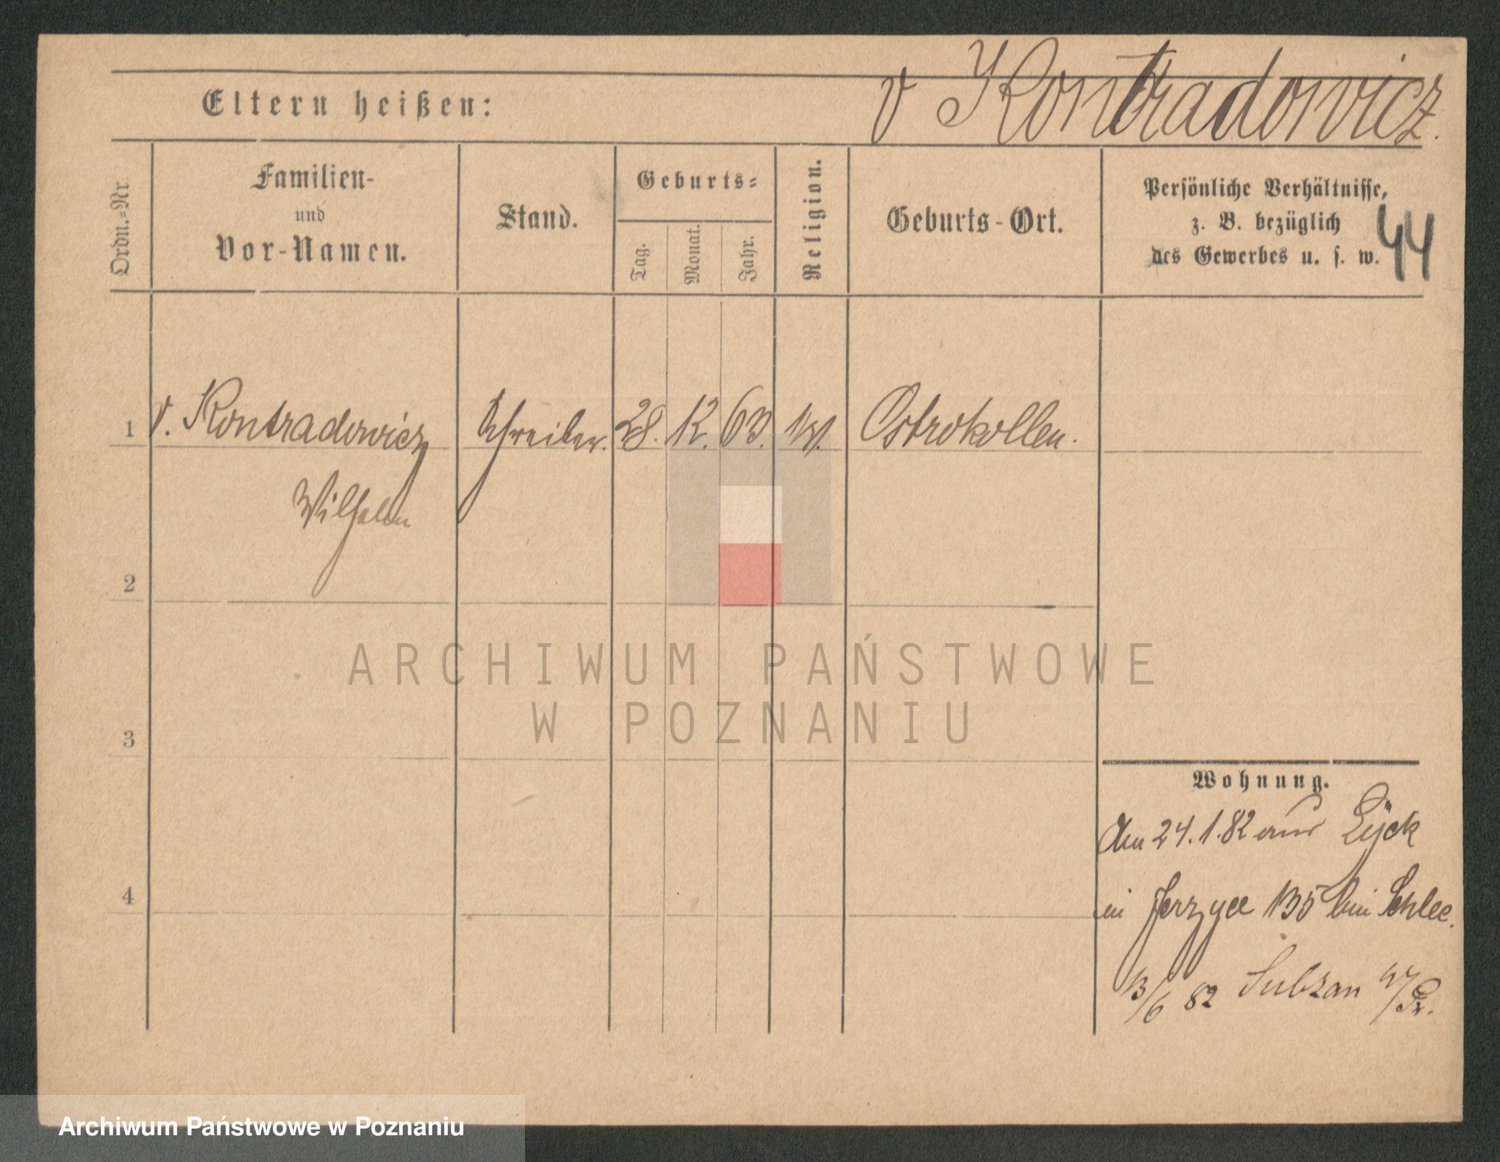 v Kontradowicz.
Eltern heißen:
Ordn.=Nr.
Familien-
und
Vor-Namen.
Stand.
Geburts=
Tag.
Monat.
Jahr.
Religion.
Geburts-Ort.
Persönliche Verhältnisse,
z. B. bezüglich
des Gewerbes u. s. w.
44
1 v. Kontradowicz Schreiber. 28. 12. 63. Ostrokollen.
Wilhelm
2
3
4
ARCHIWUM PAŃSTWOWE
W POZNANIU
Wohnung.
Am 24.1.82 aus Lyck
in Jerzyce 135 bei
13/6 82
Archiwum Państwowe w Poznaniu